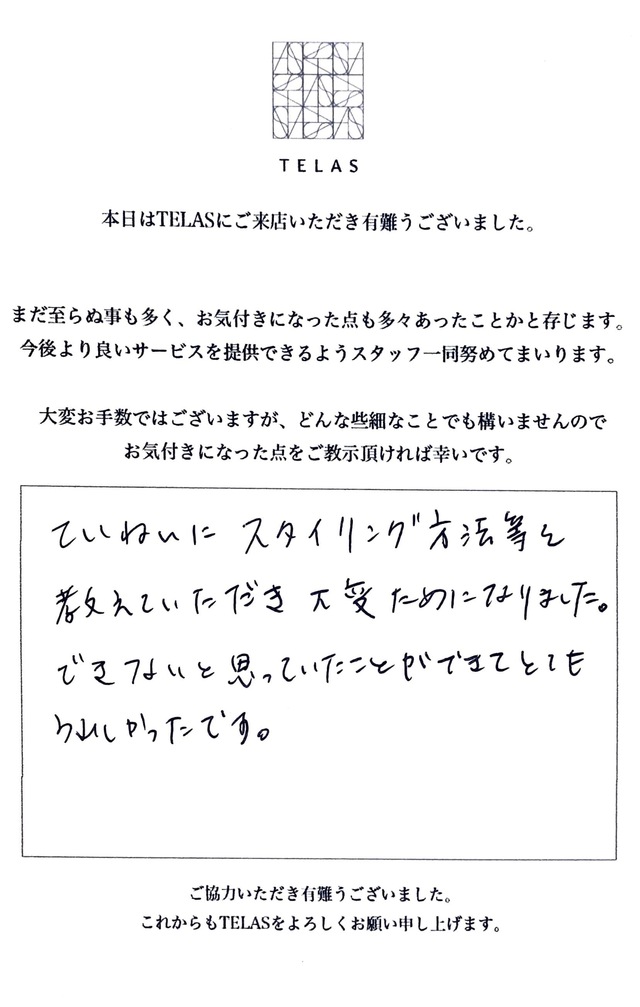 TELAS
本日はTELASにご来店いただき有難うございました。
まだ至らぬ事も多く、お気付きになった点も多々あったことかと存じます。
今後より良いサービスを提供できるようスタッフ一同努めてまいります。
大変お手数ではございますが、どんな些細なことでも構いませんので
お気付きになった点をご教示頂ければ幸いです。
ていねいに スタイリング方法等を
教えていただき 大変ためになりました。
できないと思っていたことができてとても
うれしかったです。
ご協力いただき有難うございました。
これからもTELASをよろしくお願い申し上げます。